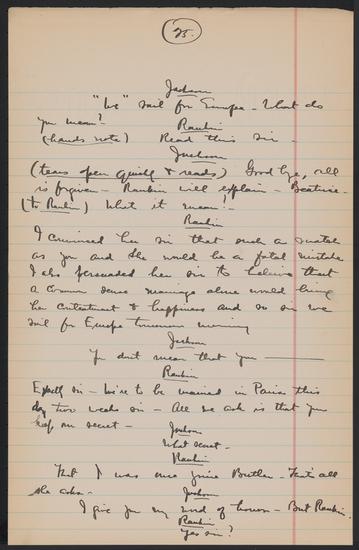 25.
Jackson
"We" sail for Europe - What do
you mean? -
Rankin
(hands note) Read this sir -
Jackson
(tears open quickly & reads) Good bye, all
is forgiven - Rankin will explain - Beatrice -
(to Rankin) What it mean? -
Rankin
I convinced her sir that such a match
as you and she would be a fatal mistake
I also persuaded her sir to believe that
a common sense marriage alone would bring
her contentment & happiness and so sir we
sail for Europe tomorrow morning
Jackson
You don't mean that you ———
Rankin
Exactly sir - We're to be married in Paris this
day two weeks sir - All we ask is that you
keep our secret -
Jackson
What secret -
Rankin
That I was once your Butler - That's all
she asks -
Jackson
I give you my word of honor - But Rankin
Rankin
Yes sir?